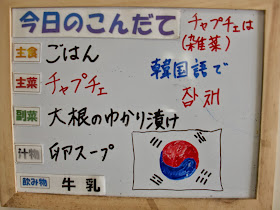 今日のこんだて
主食 ごはん
主菜 チャプチェ
副菜 大根のゆかり漬け
汁物 卵スープ
飲み物 牛乳
チャプチェは
(雑菜)
韓国語で
잡채